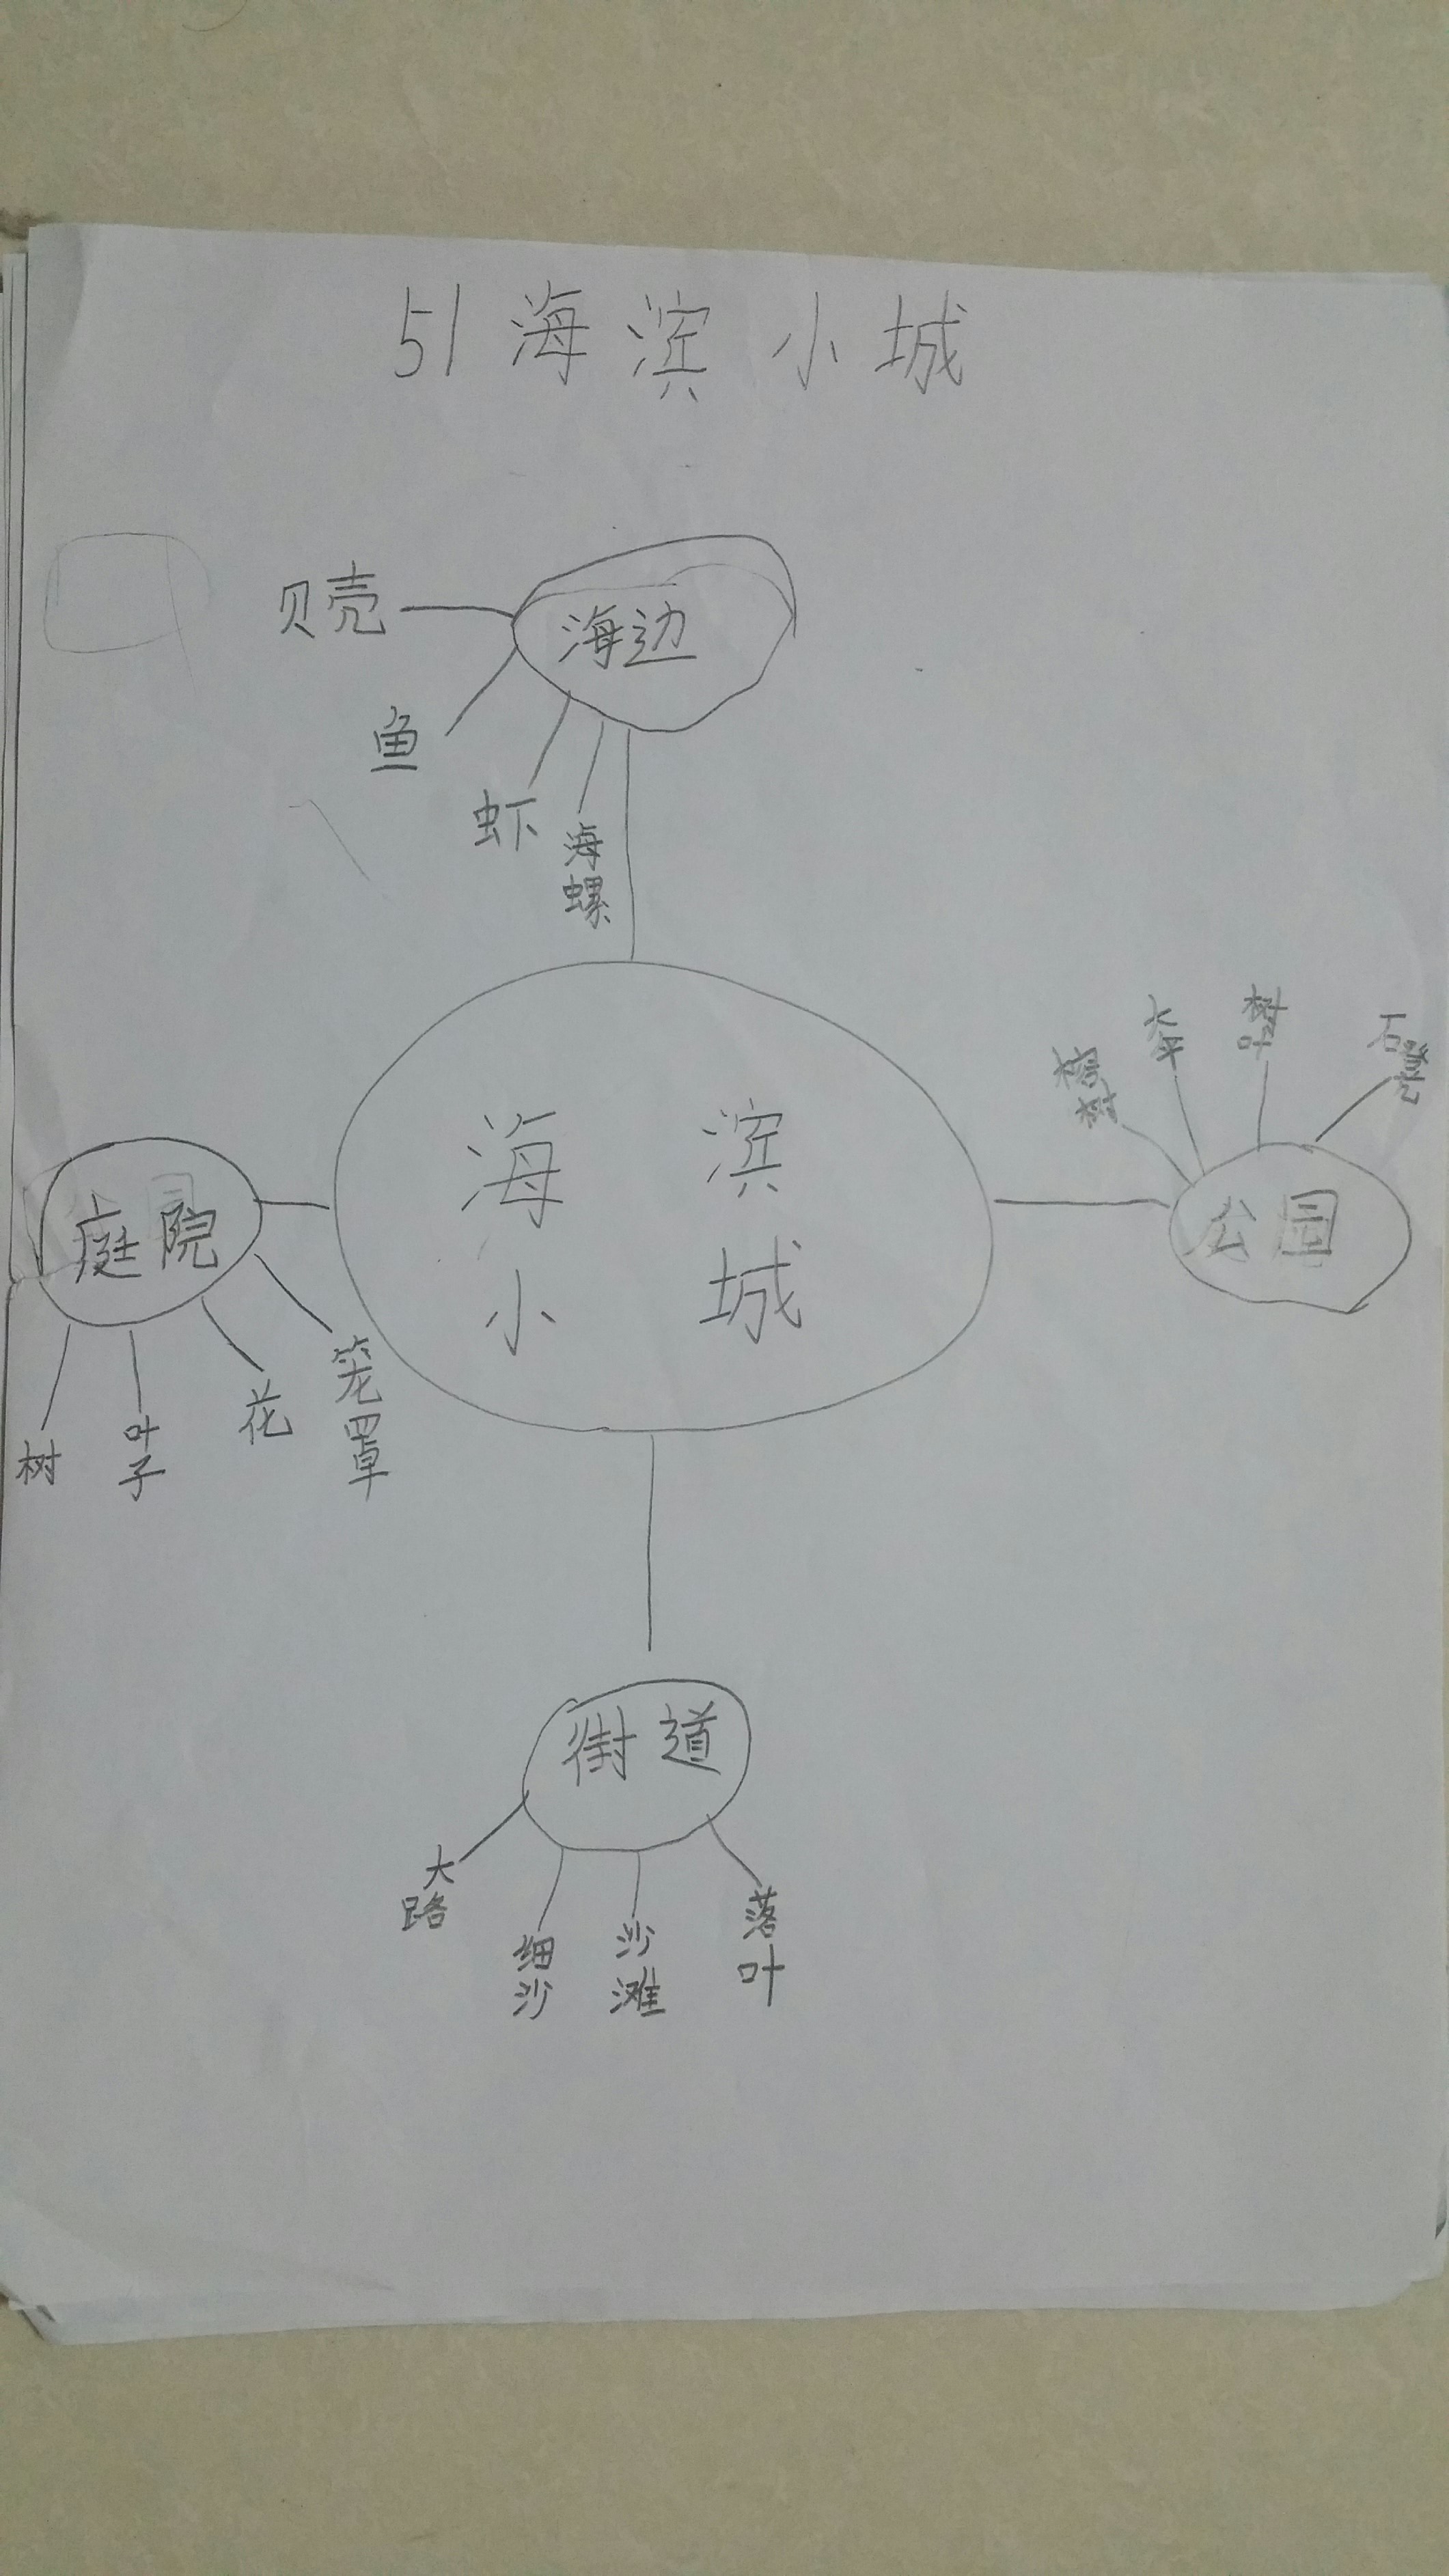 51 海滨小城
贝壳
海边
鱼
虾
海螺
榕树
树叶
石凳
海滨
小城
庭院
公园
树
叶子
花
笼罩
街道
大路
细沙
沙滩
落叶